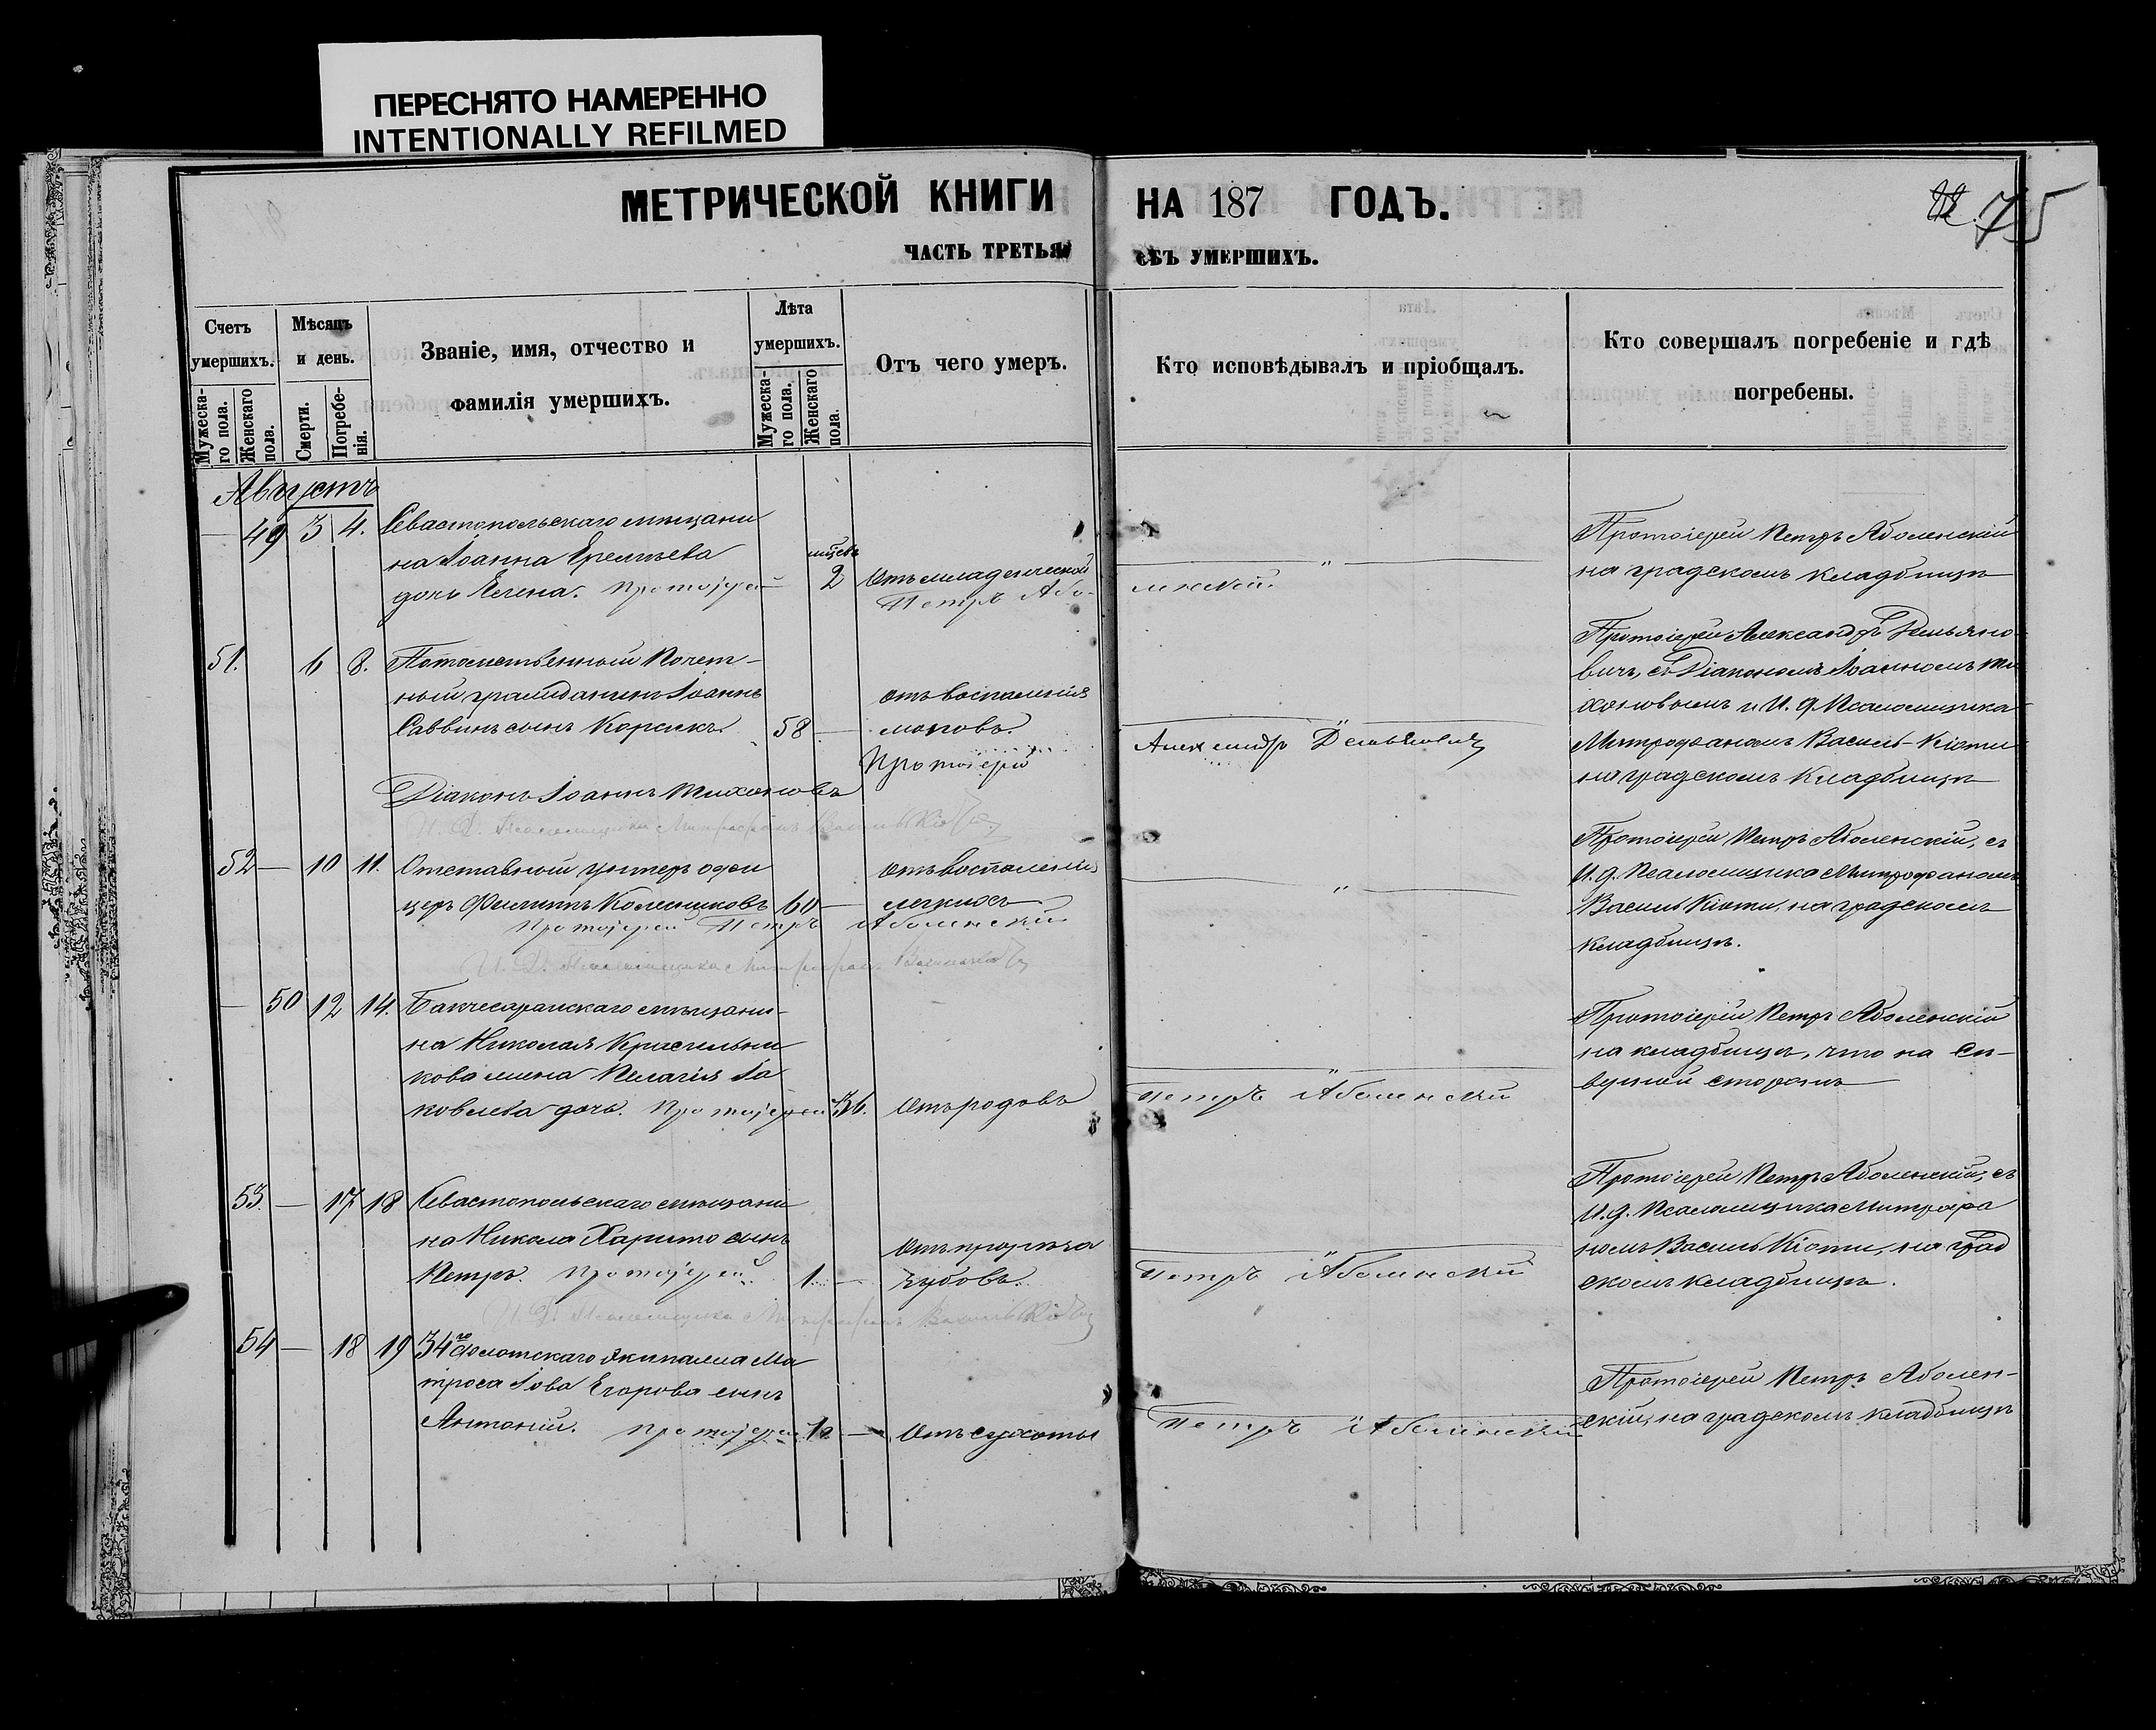 ПЕРЕСНЯТО НАМЕРЕННО
INTENTIONALLY REFILMED
МЕТРИЧЕСКОЙ КНИГИ НА 187 ГОДЪ.
75
ЧАСТЬ ТРЕТЬЯ ОБЪ УМЕРШИХЪ.
Счетъ умершихъ.
Мужескаго пола.
Женскаго пола.
Мѣсяцъ и день.
Смерти.
Погребенія.
Званіе, имя, отчество и фамилія умершихъ.
Лѣта умершихъ.
Мужескаго пола.
Женскаго пола.
Отъ чего умеръ.
Кто исповѣдывалъ и пріобщалъ.
Кто совершалъ погребеніе и гдѣ погребены.
Августъ
— 49 3 4. Севастопольскаго мѣщани
на Іоанна Еремѣева
дочь Елена. Протоіерей
2 Отъ младенческой
Петръ Або-
ленскій.
Протоіерей Петръ Аболенскій
на градскомъ кладбищѣ
51. 6 8. Потомственный Почет-
ный гражданинъ Іоаннъ
Саввинъ сынъ
58 — отъ воспаленія
мозговъ.
Протоіерей
Александръ Демьяновичъ
Діаконъ Іоаннъ Тихоновъ
И. Д. Псаломщика Митрофанъ Василькіоти
Протоіерей Александръ Демьяно-
вичъ, съ Діакономъ Іоанномъ Ти
хоновымъ и И. д. Псаломщика
Митрофаномъ Василь-Кіоти
на градскомъ кладбищѣ
52 — 10 11. Отставной унтеръ офи
церъ Филиппъ Колесниковъ 60 —
отъ воспаленія
легкихъ
Протоіерей Петръ Аболенскій
И. Д. Псаломщика Митрофанъ Василькіоти
Протоіерей Петръ Аболенскій, съ
И. д. Псаломщика Митрофаномъ
Василь Кіоти, на градскомъ
кладбищѣ.
— 50 12 14. Бахчесарайскаго мѣщани-
на Николая Красильни
кова жена Пелагія Іа
ковлева дочь. Протоіерей 36. Отъ родовъ
Петръ Аболенскій
Протоіерей Петръ Аболенскій
на кладбищѣ, что на Сѣ-
верной сторонѣ
53. — 17 18 Севастопольскаго мѣщани
на Никола Харито сынъ
Петръ. Протоіерей 1. —
Отъ прорѣза
зубовъ.
Петръ Аболенскій
И. Д. Псаломщика Митрофанъ Василькіоти
Протоіерей Петръ Аболенскій, съ
И. д. Псаломщика Митрофа
номъ Василь Кіоти, на град
скомъ кладбищѣ.
54 — 18 19 34го Флотскаго Экипажа Ма
троса Іова Егорова сынъ
Антоній. Протоіерей — Отъ сухоты
Петръ Аболенскій
Протоіерей Петръ Аболен-
скій, на градскомъ кладбищѣ